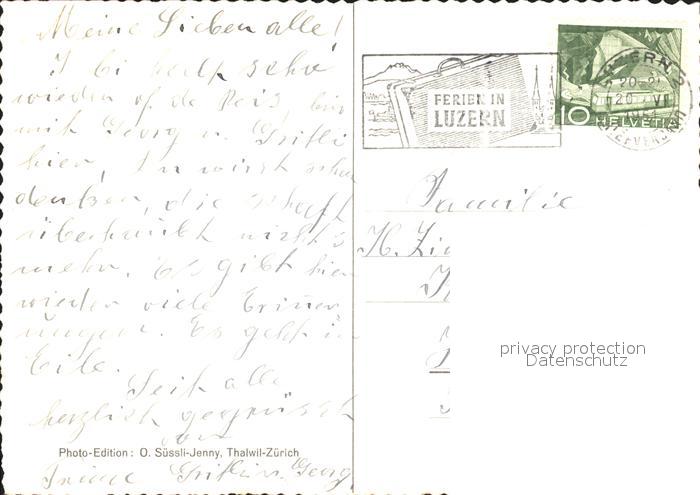 Meine Lieben alle!
I bi halt scho
wieder of de Reis, bin
mit Georg u. Gritli
hier, Ihr wirst schon
denken, die schafft
überhaupt nichts
mehr. Es gibt hier
wieder viele Erinner
ungen. Es geht in
Eile.
Seit alle
herzlich gegrüsst
von
Gritli u. Georg
Photo-Edition: O. Süssli-Jenny, Thalwil-Zürich
FERIEN IN
LUZERN
LUZERN 2
20
VI
BRIEFVERSAND
10 HELVETIA
Familie
H.
privacy protection
Datenschutz